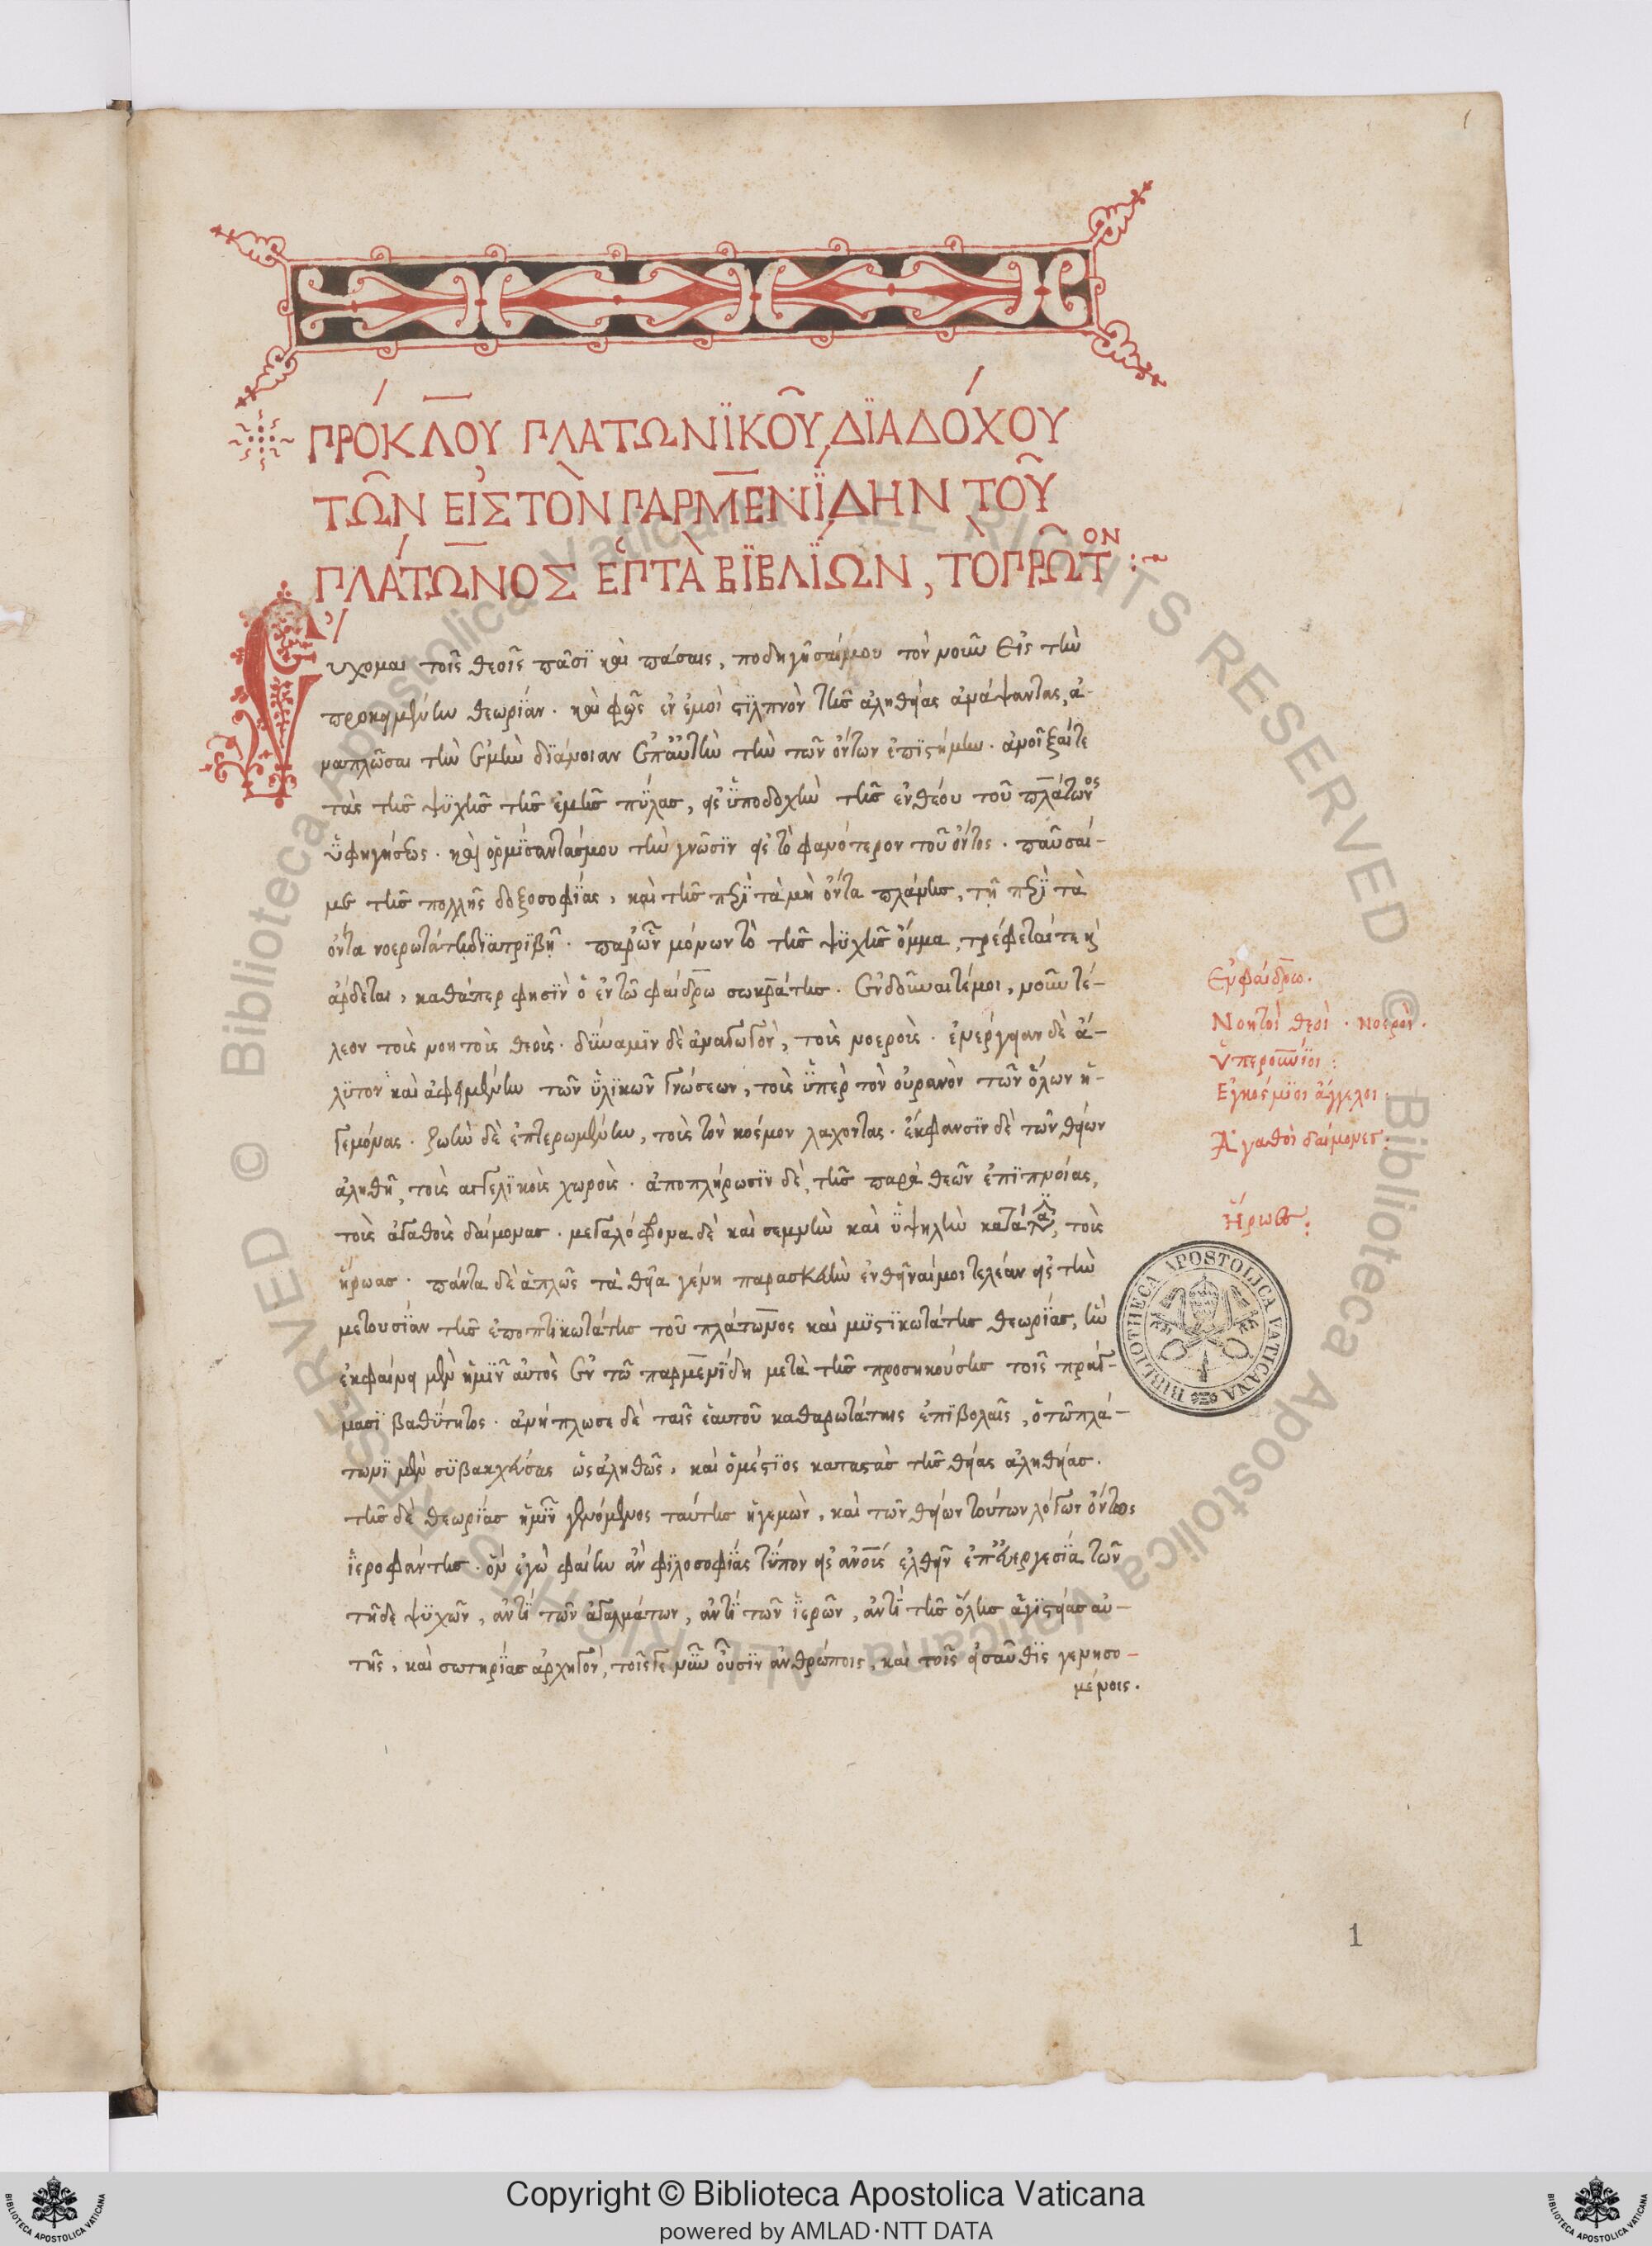 ΠΡΌΚΛΟΥ ΠΛΑΤΩΝΪΚΟΥ͂ ΔΪΑΔΌΧΟΥ
ΤΩ͂Ν ΕἸΣ ΤῸΝ ΠΑΡΜΕΝΪ́ΔΗΝ ΤΟΥ͂
ΠΛΆΤΩΝΟΣ ἙΠΤᾺ ΒΪΒΛΪ́ΩΝ, ΤῸ ΠΡΩ͂ΤΟΝ :~
Εὔχομαι τοῖς θεοῖς πᾶσϊ καὶ πάσαις, ποδηγῆσαί μου τὸν νοῦν εἰς τὴν
προκειμένην θεωρίαν. καὶ φῶς ἐν ἐμοὶ στιλπνὸν τῆς ἀληθείας ἀνάψαντας, ἀ-
ναπλῶσαι τὴν ἐμὴν διάνοιαν ἐπ' αὐτὴν τὴν τῶν ὄντων ἐπιστήμην. ἀνοῖξαί τε
τὰς τῆς ψυχῆς τῆς ἐμῆς πύλας, εἰς ὑποδοχὴν τῆς ἐνθέου τοῦ πλάτωνος
ὑφηγήσεως. καὶ ὁρμίσαντάς μου τὴν γνῶσιν εἰς τὸ φανότερον τοῦ ὄντος. παῦσαί-
με τῆς πολλῆς δοξοσοφίας, καὶ τῆς περὶ τὰ μὴ ὄντα πλάνης, τῇ περὶ τὰ
ὄντα νοερωτάτῃ διατριβῇ. παρ' ὧν μόνων τὸ τῆς ψυχῆς ὄμμα, τρέφεταί τε καὶ
ἄρδεται, καθάπερ φησὶν ὁ ἐν τῶ φαίδρω σωκράτης. ἐνδοῦναί τέ μοι, νοῦν τέ-
λεον τοὺς νοητοὺς θεούς. δύναμιν δὲ ἀναγωγὸν, τοὺς νοερούς. ἐνέργειαν δὲ ἄ-
λυτον καὶ ἀφειμένην τῶν ὑλικῶν γνώσεων, τοὺς ὑπὲρ τὸν οὐρανὸν τῶν ὅλων ἡ-
γεμόνας. ζωὴν δὲ ἐπτερωμένην, τοὺς τὸν κόσμον λαχόντας. ἔκφανσιν δὲ τῶν θείων
ἀληθῆ, τοὺς ἀγγελικοὺς χορούς. ἀποπλήρωσιν δὲ, τῆς παρὰ θεῶν ἐπιπνοίας,
τοὺς ἀγαθοὺς δαίμονας. μεγαλόφρονα δὲ καὶ σεμνὴν καὶ ὑψηλὴν κατά, τοὺς
ἥρωας. πάντα δὲ ἁπλῶς τὰ θεῖα γένη παρασκευὴν ἐνθεῖναί μοι τελέαν εἰς τὴν
μετουσίαν τῆς ἐποπτικωτάτης τοῦ πλάτωνος καὶ μυστικωτάτης θεωρίας, ἣν
ἐκφαίνει μὲν ἡμῖν αὐτὸς ἐν τῶ παρμενίδη μετὰ τῆς προσηκούσης τοῖς πράγ-
μασι βαθύτητος. ἀνήπλωσε δὲ ταῖς ἑαυτοῦ καθαρωτάταις ἐπιβολαῖς, ὁ τῶ πλά-
τωνι μὲν συβακχεύσας ὡς ἀληθῶς, καὶ ὁμέστιος καταστὰς τῆς θείας ἀληθείας.
τῆς δὲ θεωρίας ἡμῖν γενόμενος ταύτης ἡγεμὼν, καὶ τῶν θείων τούτων λόγων ὄντως
ἱεροφάντης. ὃν ἐγὼ φαίην ἂν φιλοσοφίας τύπον εἰς ἀνους ἐλθεῖν ἐπ' εὐεργεσία τῶν
τῇδε ψυχῶν, ἀντὶ τῶν ἀγαλμάτων, ἀντὶ τῶν ἱερῶν, ἀντὶ τῆς ὅλης ἁγιστείας αὐ-
τῆς, καὶ σωτηρίας ἀρχηγὸν, τοῖς γε νῦν οὖσιν ἀνθρώποις, καὶ τοῖς εἰσαῦθις γενησο-
μένοις.
Ἐν φαίδρω.
Νοητοὶ θεοὶ. νοεροὶ.
Ὑπερουνιοι:
Ἐγκόσμιοι ἄγγελοι:
Ἀγαθοὶ δαίμονες:
Ἥρωες:
BIBLIOTHECA APOSTOLICA VATICANA
1
Biblioteca Apostolica Vaticana ALL RIGHTS RESERVED ©
Copyright © Biblioteca Apostolica Vaticana
powered by AMLAD·NTT DATA